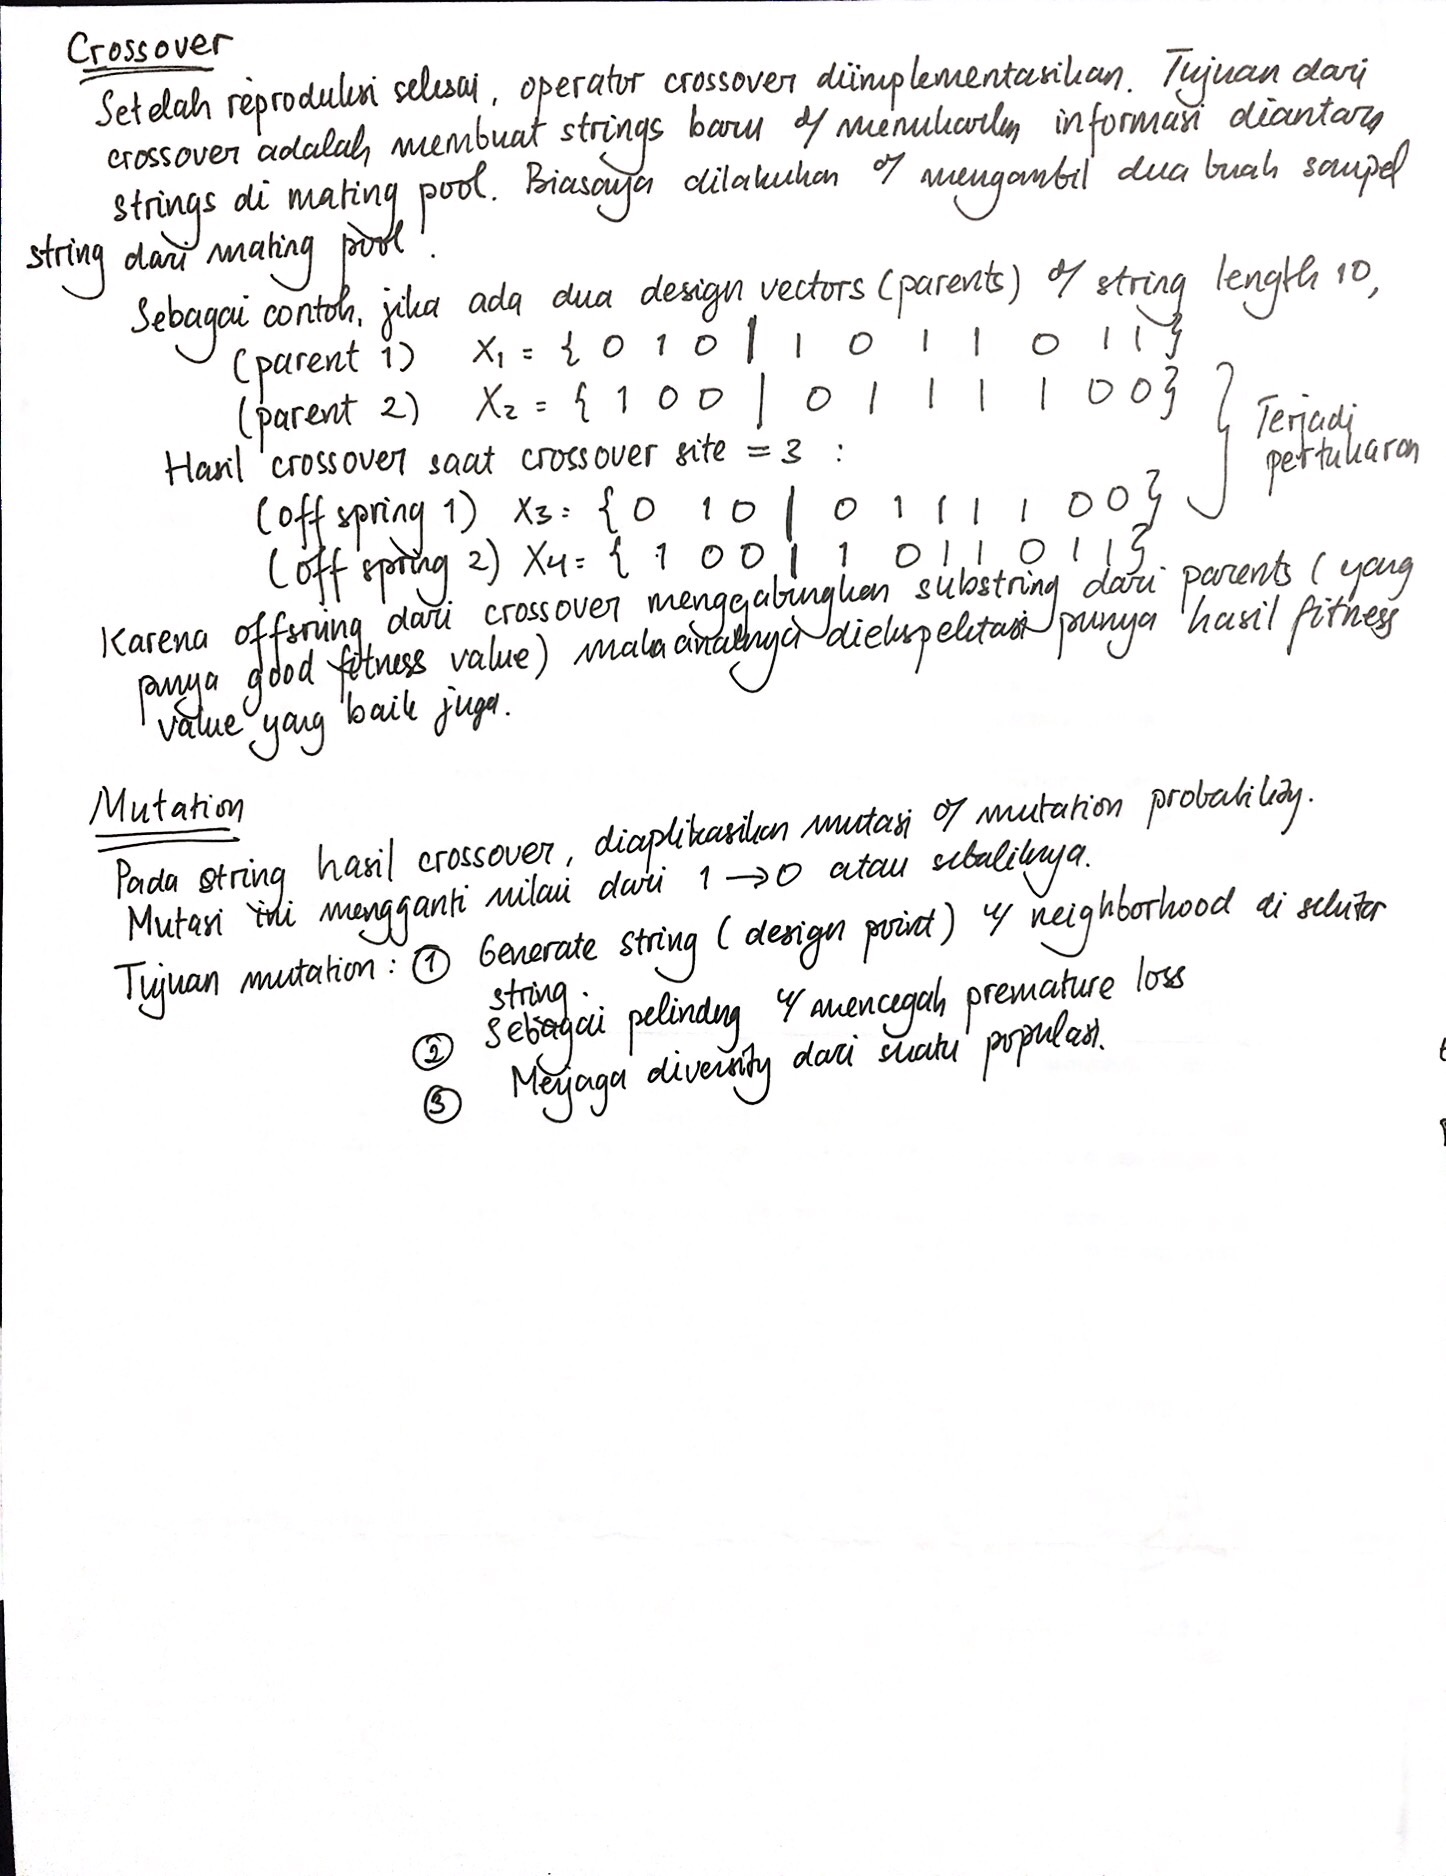 Crossover
Setelah reproduksi selesai, operator crossover diimplementasikan. Tujuan dari
crossover adalah membuat strings baru dg menukarkan informasi diantara
strings di mating pool. Biasanya dilakukan dg mengambil dua buah sampel
string dari mating pool.
Sebagai contoh, jika ada dua design vectors (parents) dg string length 10,
(parent 1) X₁ = { 0 1 0 | 1 0 1 1 0 1 1 }
(parent 2) X₂ = { 1 0 0 | 0 1 1 1 1 0 0 }
Terjadi
pertukaran
Hasil crossover saat crossover site = 3 :
(off spring 1) X3 = { 0 1 0 | 0 1 1 1 1 0 0 }
(off spring 2) X4 = { 1 0 0 | 1 0 1 1 0 1 1 }
Karena offsring dari crossover menggabungkan substring dari parents (yang
punya good fitness value) maka anaknya diekspektasi punya hasil fitness
value yang baik juga.
Mutation
Pada string hasil crossover, diaplikasikan mutasi dg mutation probability.
Mutasi ini mengganti nilai dari 1 → 0 atau sebaliknya.
Tujuan mutation : ① Generate string (design point) y/ neighborhood di sekitar
string.
② Sebagai pelindung y/ mencegah premature loss
③ Menjaga diversity dari suatu populasi.